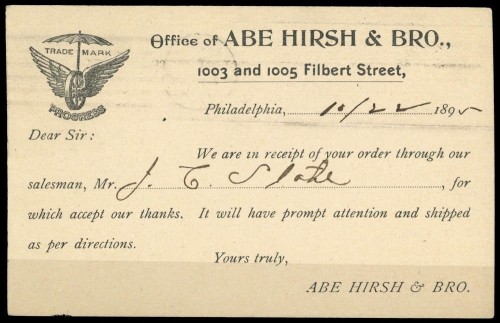 TRADE MARK
PROGRESS
Office of ABE HIRSH & BRO.,
1003 and 1005 Filbert Street,
Philadelphia, 10/22 1895
Dear Sir:
We are in receipt of your order through our
salesman, Mr. J. C. Slate, for
which accept our thanks. It will have prompt attention and shipped
as per directions.
Yours truly,
ABE HIRSH & BRO.